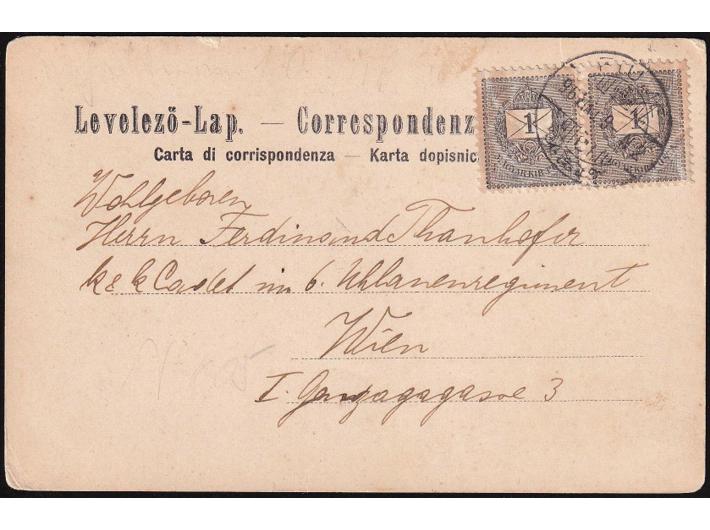 Levelező-Lap. — Correspondenz
Carta di corrispondenza — Karta dopisnica
1 1
Wohlgeboren
Herrn Ferdinand Thanhofer
k & k Cadet im 6. Uhlanenregiment
Wien
I. Gonzagagasse 3